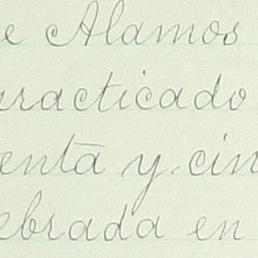 e Alamos
practicado
enta y cin
ebrada en